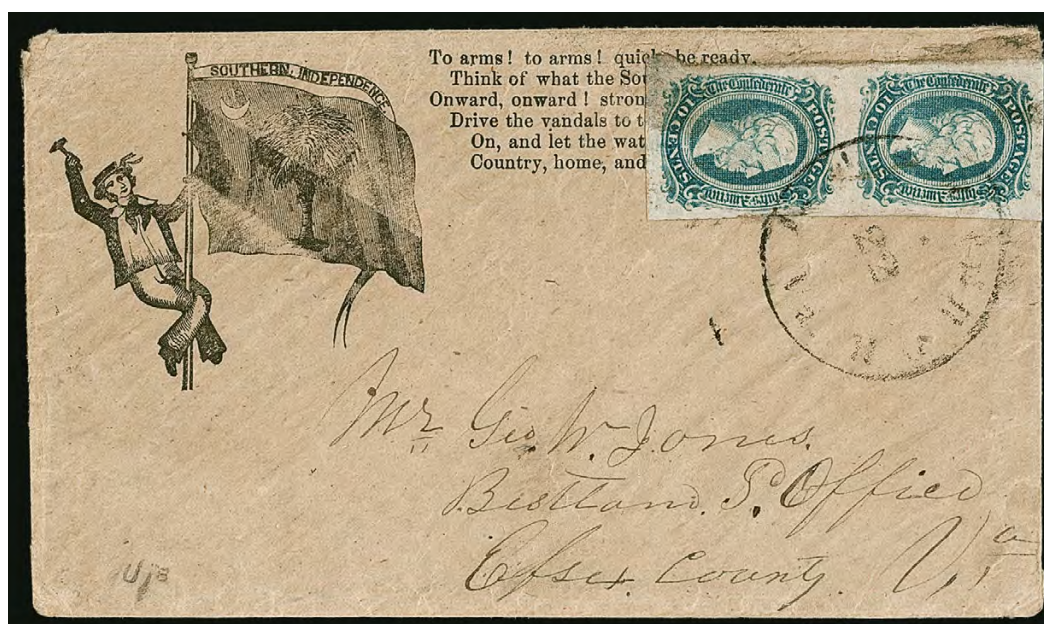 SOUTHERN INDEPENDENCE
To arms! to arms! quick, be ready,
Think of what the Sou
Onward, onward! stron
Drive the vandals to t
On, and let the wat
Country, home, and
The Confederate
10 CENTS POSTAGE
States of America
The Confederate
10 CENTS POSTAGE
States of America
Mr Geo. W. Jones.
Bestland. P. Office
Essex County. Va